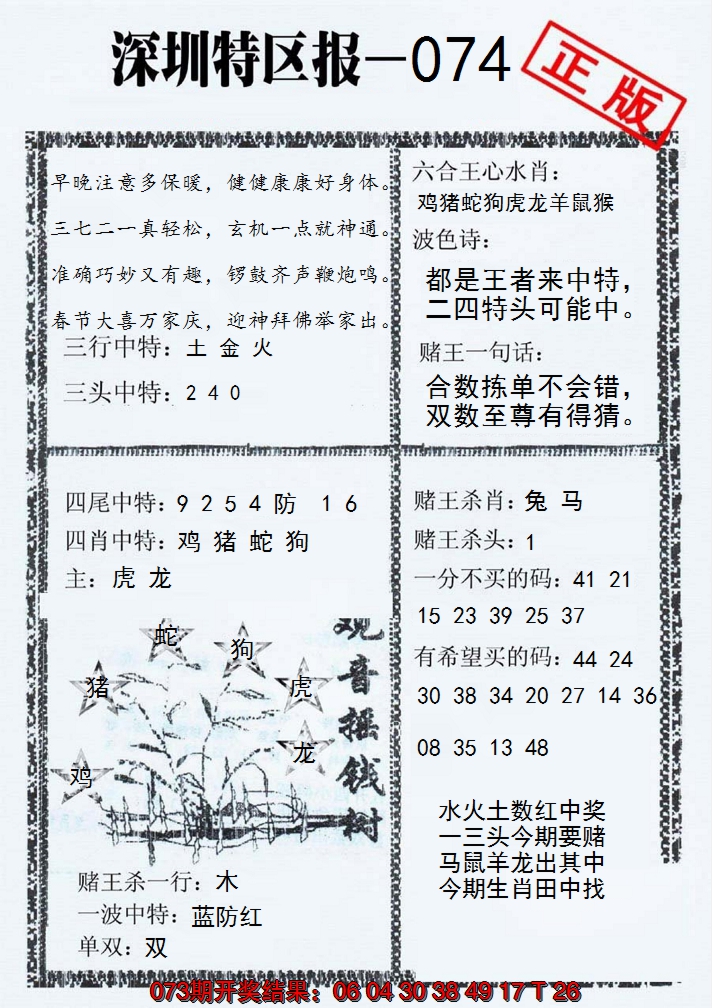 深圳特区报—074
正版
早晚注意多保暖，健健康康好身体。
三七二一真轻松，玄机一点就神通。
准确巧妙又有趣，锣鼓齐声鞭炮鸣。
春节大喜万家庆，迎神拜佛举家出。
三行中特：土 金 火
三头中特：2 4 0
六合王心水肖：
鸡猪蛇狗虎龙羊鼠猴
波色诗：
都是王者来中特，
二四特头可能中。
赌王一句话：
合数拣单不会错，
双数至尊有得猜。
四尾中特：9 2 5 4 防 1 6
四肖中特：鸡 猪 蛇 狗
主：虎 龙
蛇
狗
猪
虎
龙
鸡
观音摇钱树
赌王杀一行：木
一波中特：蓝防红
单双：双
赌王杀肖：兔 马
赌王杀头：1
一分不买的码：41 21
15 23 39 25 37
有希望买的码：44 24
30 38 34 20 27 14 36
08 35 13 48
水火土数红中奖
一三头今期要赌
马鼠羊龙出其中
今期生肖田中找
073期开奖结果：06 04 30 38 49 17 T 26